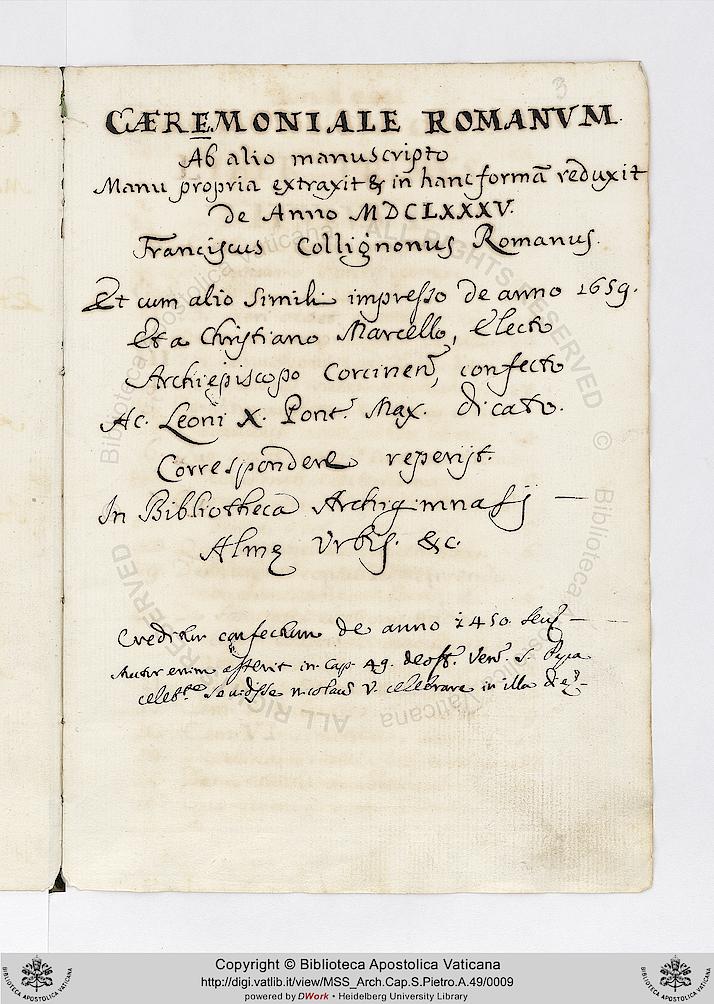 3
CÆREMONIALE ROMANVM
Ab alio manuscripto
Manu propria extraxit & in hanc formā reduxit
de Anno MDCLXXXV.
Franciscus Collignonus Romanus.
Et cum alio simili impresso de anno 1659.
Et a Christiano Marcello, Electo
Archiepiscopo Corcinen, confecto
Ac. Leoni X. Pont. Max. dicato.
Correspondere reperijt.
In Bibliotheca Archigimnasij —
Almę Vrbis. &c.
Creditur confectum de anno 1450.
enim asserit in Cap. 49. de off. Ven. S. Papa
se vidisse Nicolaus V. celebrare in illa die
Biblioteca Apostolica Vaticana
ALL RIGHTS RESERVED
©
Copyright © Biblioteca Apostolica Vaticana
http://digi.vatlib.it/view/MSS_Arch.Cap.S.Pietro.A.49/0009
powered by DWork • Heidelberg University Library
BIBLIOTECA APOSTOLICA VATICANA
BIBLIOTECA APOSTOLICA VATICANA